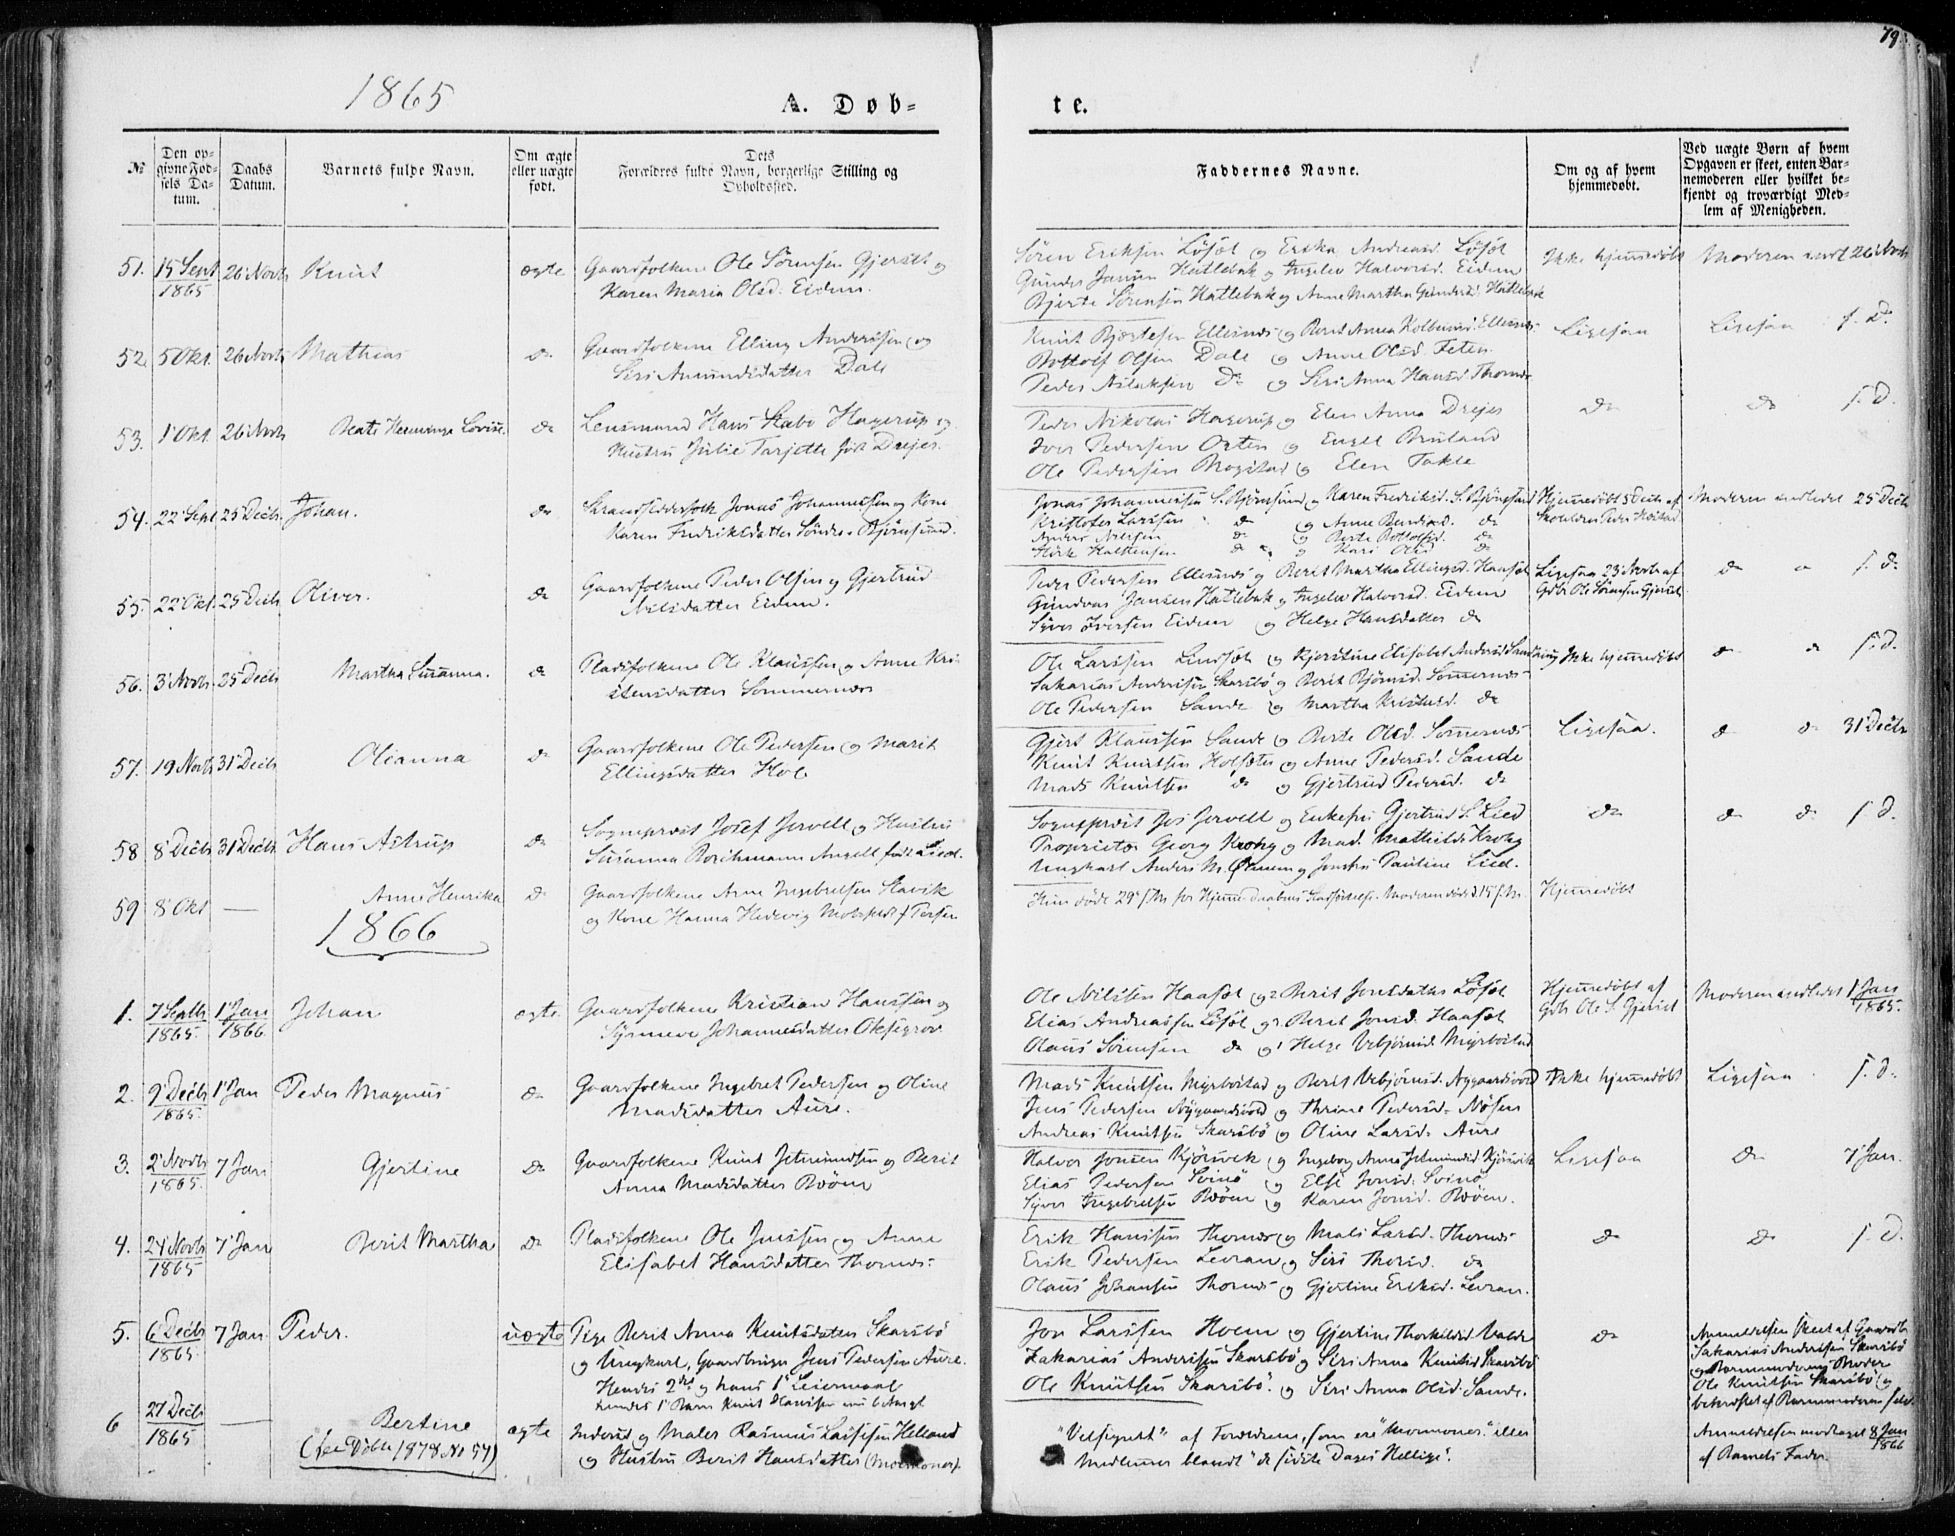 79.
1865
A. Døb-
te.
№
Den op-
givne Fød-
sels Da-
tum.
Daabs
Datum.
Barnets fulde Navn.
Om ægte
eller uægte
født.
Dets
Forældres fulde Navn, borgerlige Stilling og
Opholdssted.
Faddernes Navne.
Om og af hvem
hjemmedøbt.
Ved uægte Børn af hvem
Opgaven er skeet, enten Bar-
nemoderen eller hvilket be-
kjendt og troværdigt Med-
lem af Menigheden.
51. 15 Sept 1865 26 Novbr Knut ægte Gaardfolkene Ole Sörensen Gjerset og
Karen Maria Olsd. Eidem.
Sören Eriksen Löset og Erika Andreasd. Löset
Gunder Jansen Hatlebak og Ingelev Halvorsd. Eidem
Bjerte Sörensen Hatlebak og Anne Martha Gundersd. Hatlebak
Ikke hjemmedöbt
Moderen 26 Novbr
52 5 Okt. 26 Novbr Mathias do Gaardfolkene Elling Andersen og
Siri Amundsdatter Dale
Knut Bjertesen Ellesnæs og Berit Anna Kolbeinsd. Ellesnæs
Bottolf Olsen Dale og Anne Olsd. Feten
Peder Aslaksen do og Siri Anna Hansd. Thornæs
Ligesaa Ligesaa s. D.
53. 1 Okt. 26 Novbr Beate Henninge Lovise. do Lensmand Hans Stabo Hagerup og
Hustru Julie Tarjette föd Drejer.
Peder Nikolai Hagerup og Elen Anna Drejer
Iver Pedersen Orten og Engel Bruland
Ole Pedersen Mogstad og Elen Takle
do do s. d.
54. 22 Sept 25 Decbr Johan. do Strandsidderfolk Jonas Johannessen og Kone
Karen Fredriksdatter Söndre Björnsund.
Jonas Johannessen S. Björnsund og Karen Fredriksd. S. Björnsund
Kristofer Larssen do og Anne Berntsd. do
Anders Nilssen do og Berte Bottolfsd. do
Halstensen do og Kari Olsd do
Hjemmedöbt 5 Decbr af
Skoleholder Peder
Moderen indledet 25 Decbr
55. 22 Okt. 25 Decbr Oliver. do Gaardfolkene Peder Olsen og Gjertrud
Nilsdatter Eidem.
Peder Pedersen Ellesnæs og Berit Martha Ellingsd. Haaset
Gundvar Jansen Hatlebak og Ingelev Halvorsd. Eidem
Syver Iversen Eidem og Helge Hansdatter do
Ligesaa 23 Novbr af
Gdbr Ole Sörensen Gjerset
do do s. d.
56. 3 Novbr 25 Decbr Martha Susanna. do Pladsfolkene Ole Klaussen og Anne Kri-
stensdatter Sommernæs
Ole Larssen Lindset og Kjerstine Elisabet Andersd
Sakarias Anderssen Skarsbö og Berit Björnsd. Sommernæs
Ole Pedersen Sande og Martha Kristensd. do
Ikke hjemmedöbt do do s. d.
57. 19 Novbr 31 Decbr Oleanna do Gaardfolkene Ole Pedersen og Marit
Ellingsdatter Hol
Gjert Klaussen Sande og Berte Olsd. Sommernæs
Knut Knutsen Holsæter og Anne Pedersd. Sande
Mads Knutsen do og Gjertrud Pedersd. do
Ligesaa. do do 31 Decbr
58 8 Decbr 31 Decbr Hans Astrup do Sogneprest Josef Jervell og Hustru
Susanna Borchmann Angell född Lied.
Sogneprest Jos Jervell og Enkefru Gjertrud S. Lied
Proprietær Georg Krohg og Mad. Mathilde Krohg
Ungkarl Anders M. Ömmen og Jomfru Pauline Lied.
do do do s. d.
59 8 Okt — Anne Henrika do Gaardfolkene Arne Ingebretsen Slavik
og Kone Hanna Hedevig
Hun döde 29 s. M. för Hjemmedaabens Stadfæstelse. Moderen döde 15 s. M.
Hjemmedöbt
1866
1. 7 Septbr 1865. 1 Jan 1866 Johan ægte. Gaardfolkene Kristian Hanssen og
Synneve Johannesdatter Oksegrov.
Ole Nilssen Haaset og Berit Jonsdatter Löset
Elias Andreassen Löset og Berit Jonsd. Haaset
Olaus Sörensen do og Helge Vebjörnsd. Myrbostad
Hjemmedöbt af
Gdbr Ole S. Gjerset
Moderen indledet 1 Jan 1865.
2. 9 Decbr 1865. 1 Jan Peder Magnus do Gaardfolkene Ingebret Pedersen og Oline
Madsdatter Aure.
Mads Knutsen Myrbostad og Berit Vebjörnsd. Nygaardsvold
Jens Pedersen Nygaardsvold og Thrine Pedersd. Nösen
Andreas Knutsen Skarsbö og Oline Larsd. Aure
Ikke hjemmedöbt Ligesaa s. d.
3. 2 Novbr 1865. 7 Jan Gjertine do Gaardfolkene Knut Jetmundsen og Berit
Anna Madsdatter Rööm
Halvor Jonsen Kjörsvik og Ingeborg Anna Jetmundsd Kjörsvik
Elias Pedersen Svinö og Else Jonsd. Svinö
Syver Ingebretsen Rööm og Karen Jonsd. Rööm.
Ligesaa do 7 Jan.
4. 24 Novbr 1865 7 Jan Berit Martha do Pladsfolkene Ole Jenssen og Anne
Elisabet Hansdatter Thornæs
Erik Hanssen Thornæs og Mali Larsd. Thornæs
Erik Pedersen Levran og Siri Thorsd. do
Olaus Johansen Thornæs og Gjertine Eriksd. Levran.
do do s. D.
5. 6 Decbr 1865. 7 Jan. Peder. uægte Pige Berit Anna Knutsdatter Skarsbö
og Ungkarl, Gaardbruger Jens Pedersen Aure.
Hendes 2det og hans 1ste Leiermaal
hendes 1ste Barn Knut Hanssen
Jon Larssen Hoem og Gjertine Thorkildsd Valde
Zakarias Anderssen Skarsbö og Siri Anna Knutsd Skarsbö
Ole Knutsen Skarsbö og Siri Anna Olsd. Sande.
do
Anmeldelsen skeet af Gaardb.
Sakarias Anderssen Skarsbö
og Barnemoderens Broder
Ole Knutsen Skarsbö og
bekræftet af Barnemoderen selv.
6 27 Decbr 1865 — Bertine
(see Döbte 1878 No 54)
ægte Inderst og Maler Rasmus Larssen Helland
og Hustru Berit Hansdatter (Mormoner).
"Velsignet" af Forældrene, som ere "Mormoner" eller
Medlemmer blandt "de sidste Dages Hellige".
Anmeldelsen modtaget 8 Jan 1866
af Barnets Fader.